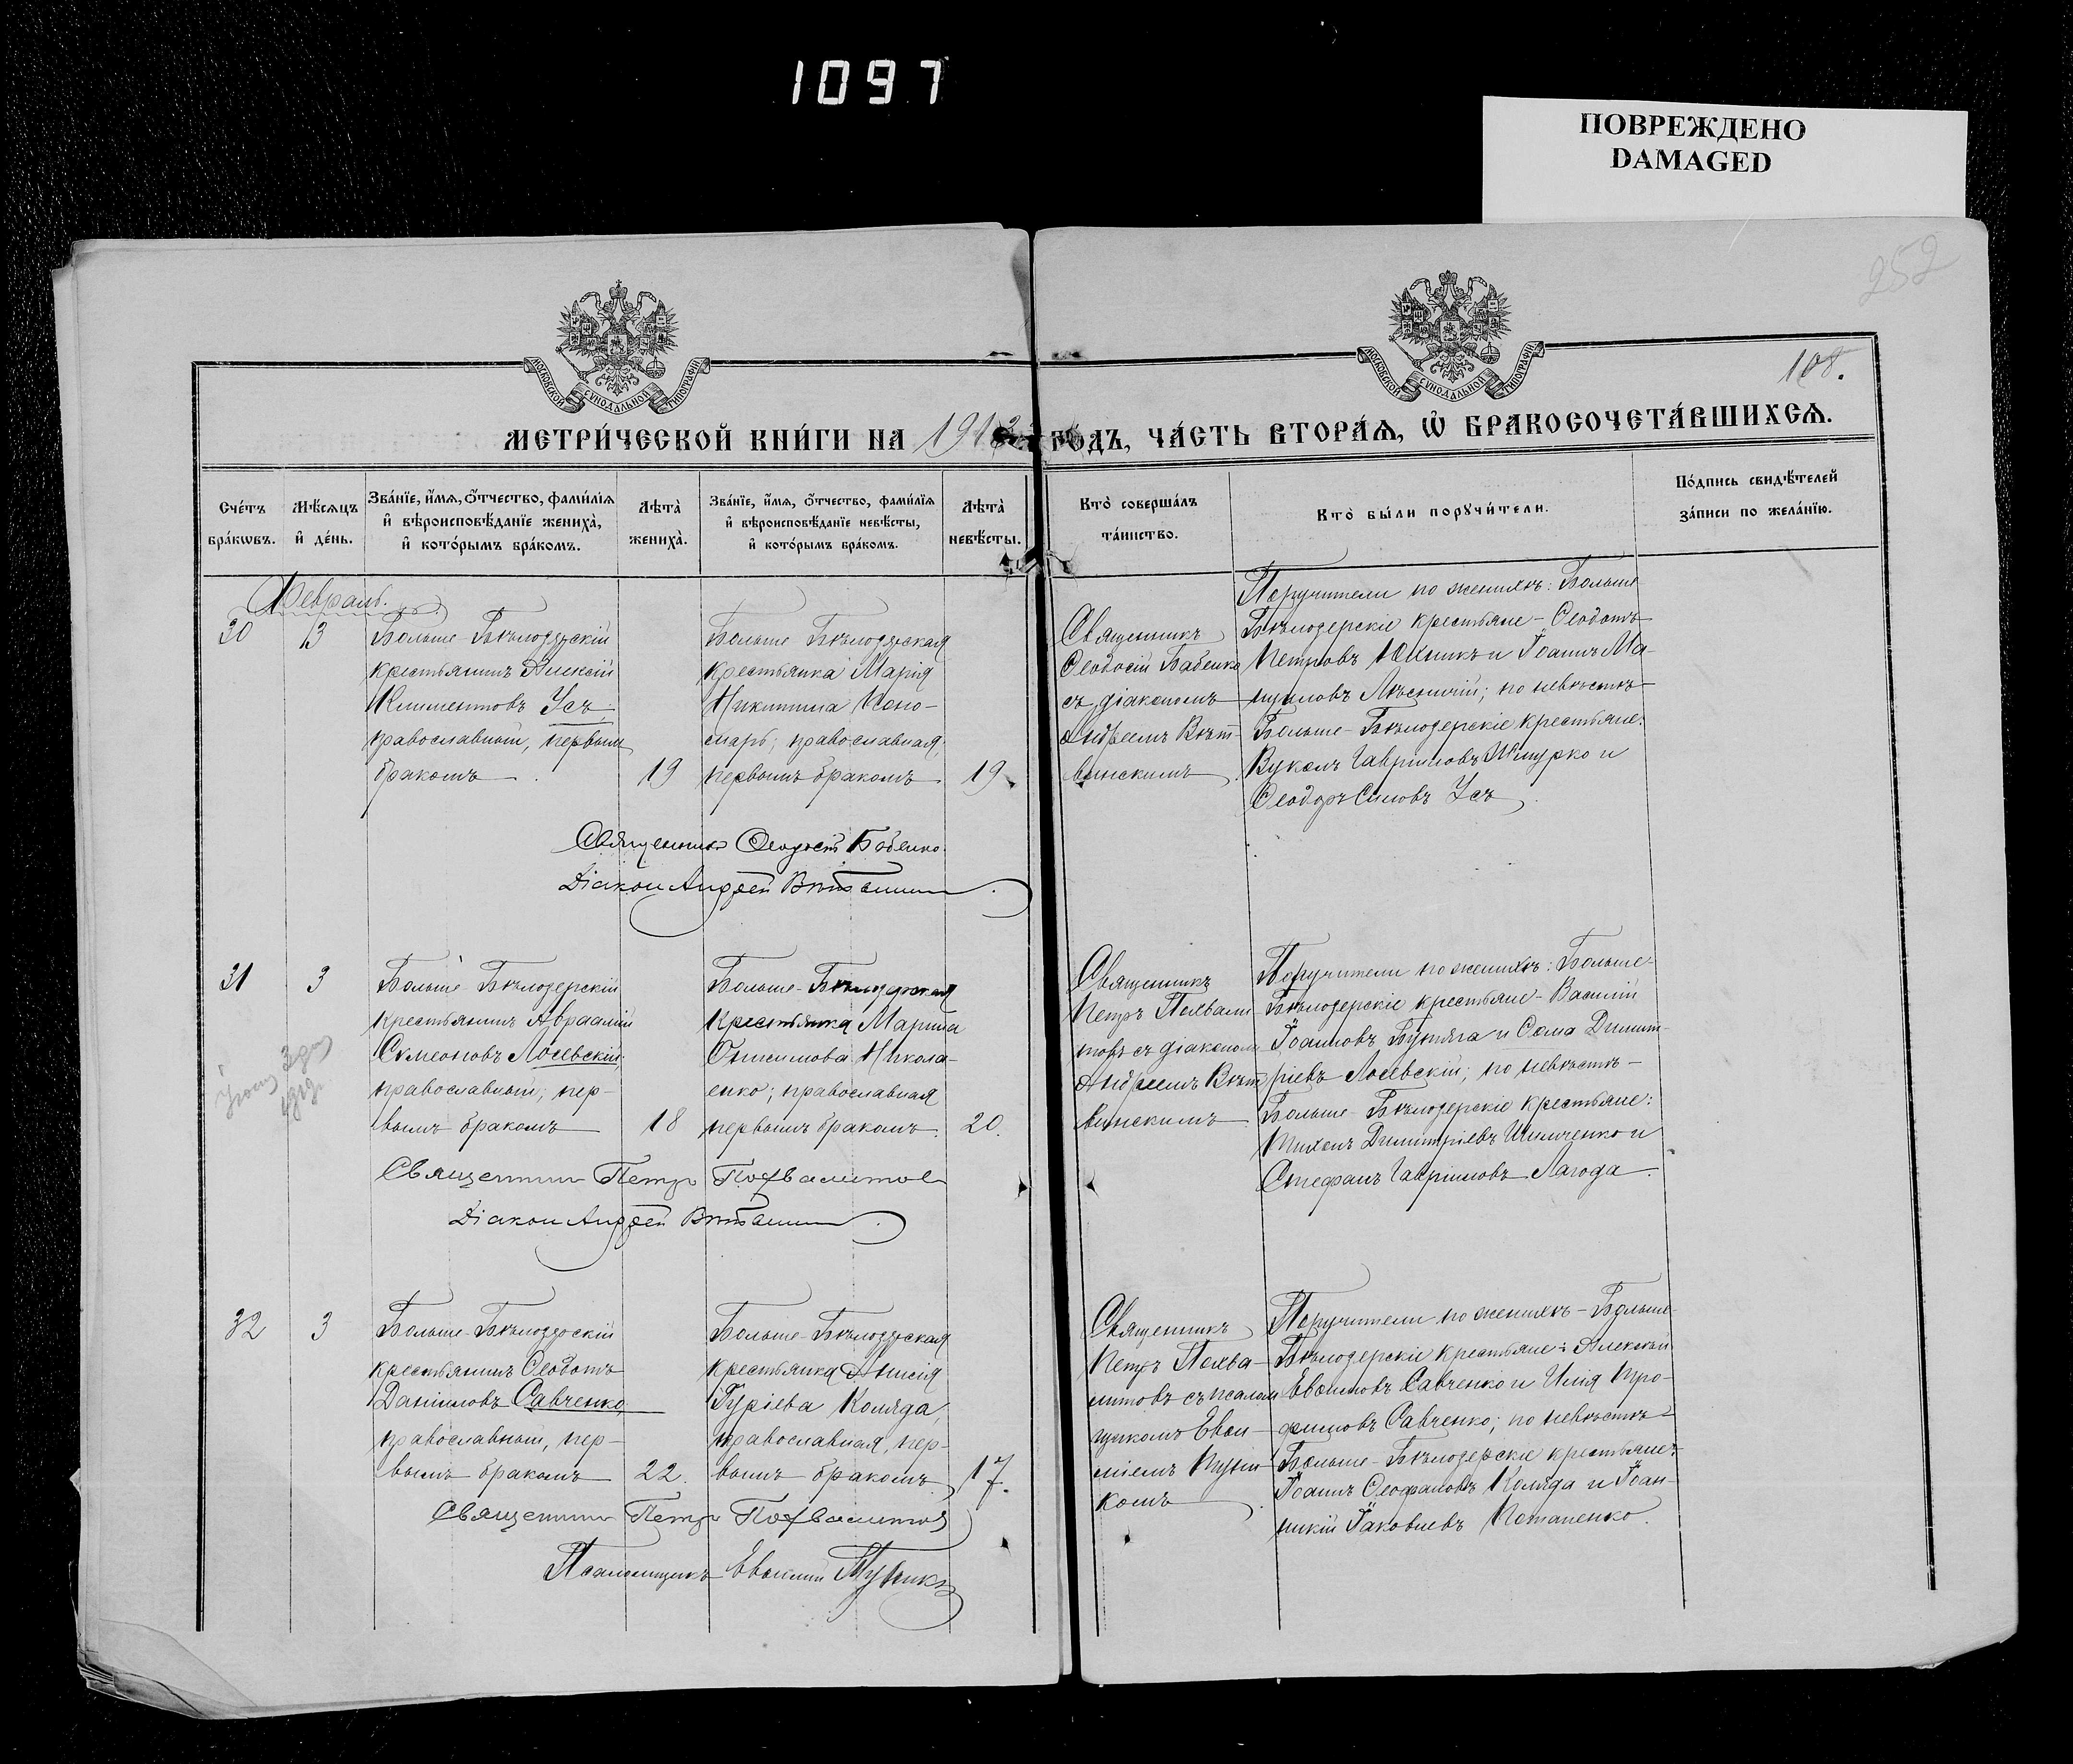 1097
ПОВРЕЖДЕНО
DAMAGED
252
108.
МОСКОВСКОЙ СѴНОДАЛЬНОЙ ТИПОГРАФІИ
МОСКОВСКОЙ СѴНОДАЛЬНОЙ ТИПОГРАФІИ
МЕТРИ́ЧЕСКОЙ КНИ́ГИ НА 191 ГО́ДЪ, ЧА́СТЬ ВТОРА́Я, Ѽ БРАКОСОЧЕТА́ВШИХСЯ.
Сче́тъ
бра́кѡвъ.
Мѣ́сяцъ
и҆ де́нь.
Зва́нїе, и҆́мя, ѻ҆́тчество, фами́лїя
и҆ вѣроисповѣ́данїе жениха̀,
и҆ кото́рымъ бра́комъ.
Лѣта̀
жениха̀.
Зва́нїе, и҆́мя, ѻ҆́тчество, фами́лїя
и҆ вѣроисповѣ́данїе невѣ́сты,
и҆ кото́рымъ бра́комъ.
Лѣта̀
невѣ́сты.
Кто̀ соверша́лъ
та́инство.
Кто̀ бы́ли порꙋчи́тели.
По́дпись свидѣ́телей
за́писи по жела́нїю.
Февраль.
30
3
Больше-Бѣлозерскій
крестьянинъ Алексій
Климентовъ Усъ
православный, первымъ
бракомъ
19
Больше Бѣлозерская
крестьянка Марія
Никитина Поно-
марь, православная
первымъ бракомъ
19
Священникъ
Ѳеодосій Бабенко
съ діакономъ
Андреемъ Вѣт-
винскимъ
Поручители по женихѣ: Больше
Бѣлозерскіе крестьяне - Ѳеодотъ
Петровъ и Іоаннъ Ма-
нуиловъ Лѣсничій; по невѣстѣ-
Больше-Бѣлозерскіе крестьяне:
Вуколъ Гавріиловъ Шмурко и
Ѳеодоръ Силовъ Усъ
Священникъ Ѳеодосій Бабенко.
Діаконъ Андрей
31
3
Больше Бѣлозерскій
крестьянинъ Авраамій
Сѵмеоновъ Лосевскій,
православный, пер-
вымъ бракомъ
18
Больше-Бѣлозерская
крестьянка Марина
Онисимова Никола-
енко; православная
первымъ бракомъ.
20.
Священникъ
Петръ Похвали-
товъ съ діакономъ
Андреемъ Вѣт-
винскимъ
Поручители по женихѣ: Больше-
Бѣлозерскіе крестьяне - Василій
Іоанновъ Бутяга и Ѳома Димит-
ріевъ Лосевскій; по невѣстѣ -
Больше-Бѣлозерскіе крестьяне:
Тихонъ Димитріевъ и
Стефанъ Гавріиловъ Лагода.
Священникъ Петръ Похвалитовъ
Діаконъ Андрей
32
3
Больше-Бѣлозерскій
крестьянинъ Ѳеодотъ
Даніиловъ Савченко,
православный, пер-
вымъ бракомъ
22.
Больше-Бѣлозерская
крестьянка Анисія
Гуріева Коляда,
православная, пер-
вымъ бракомъ
17.
Священникъ
Петръ Похва-
литовъ съ псалом
щикомъ Евѳи-
міемъ
комъ
Поручители по женихѣ - Больше-
Бѣлозерскіе крестьяне: Алексѣй
Евѳимовъ Савченко и Илія Тро-
фимовъ Савченко; по невѣстѣ
Больше-Бѣлозерскіе крестьяне:
Іоаннъ Ѳеофановъ Коляда и Іоан-
никій Іаковлевъ Потапенко.
Священникъ Петръ Похвалитовъ
Псаломщикъ Евѳимій